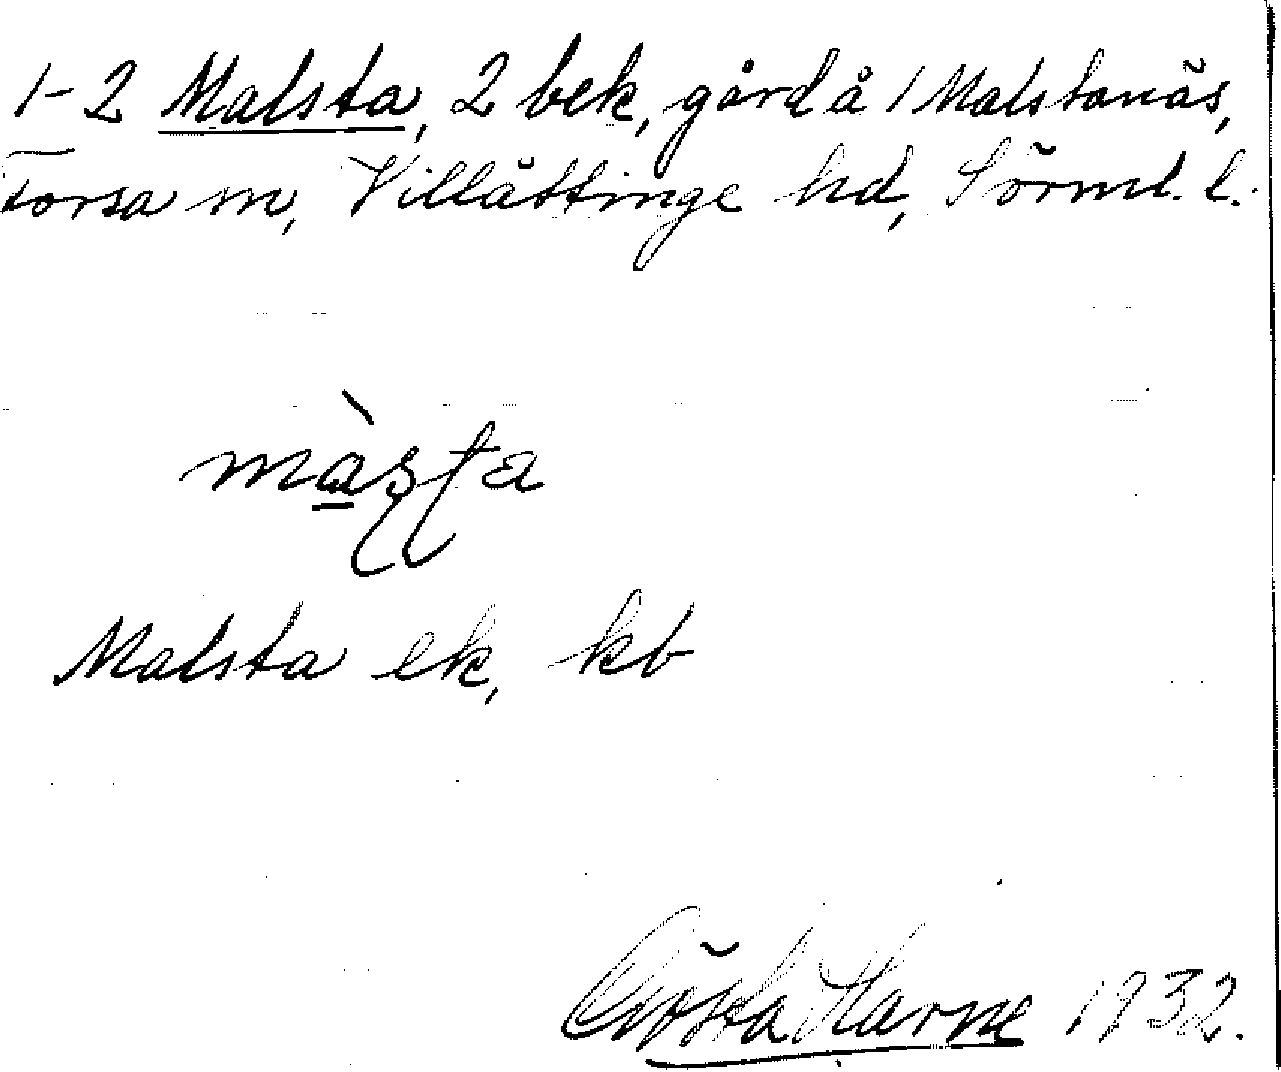 1-2 Malsta, 2 bek, gård å 1 Malstanäs,
Torsa sn, Villåttinge hd, Sörml. l.
màsta
Malsta ek, kb
Gösta Harne 1932.